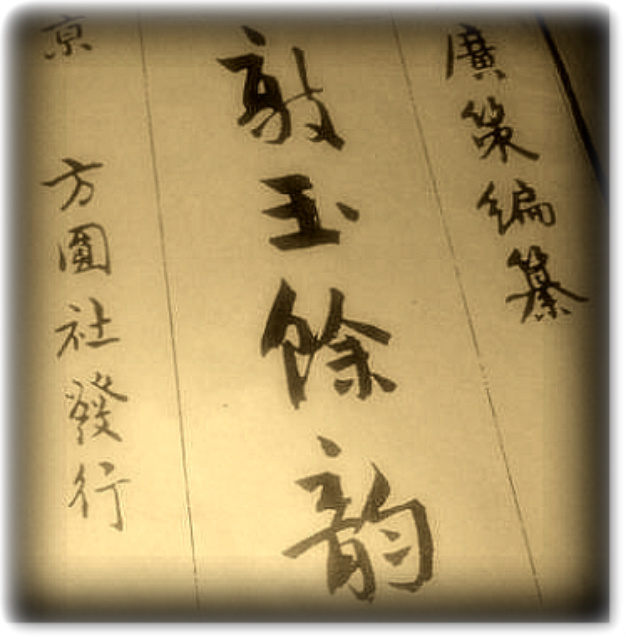 廣策編纂
敲玉餘韵
京 方圓社發行